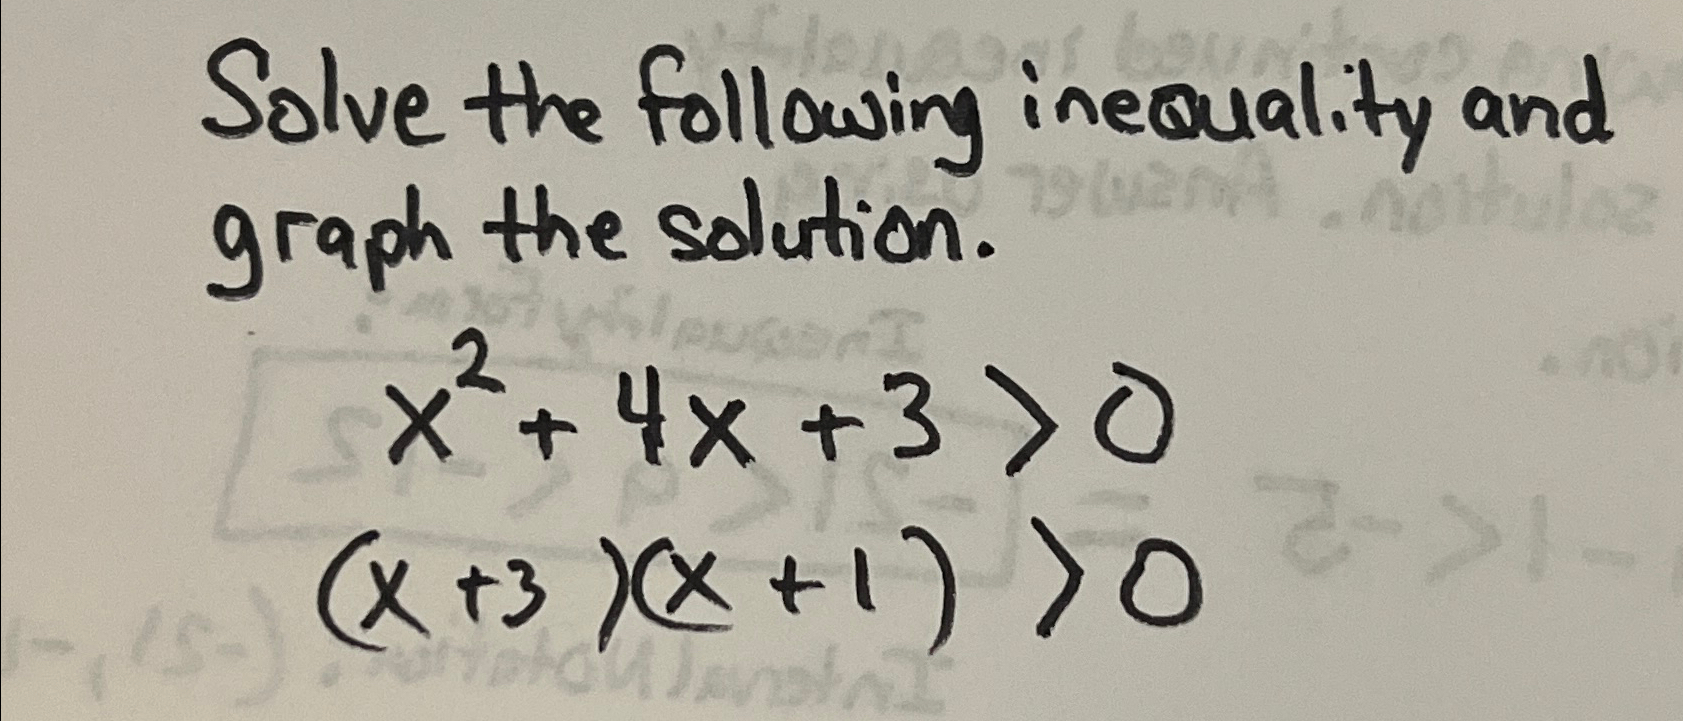 Solve the following inequality and
graph the solution.
x² + 4x + 3 > 0
(x + 3)(x + 1) > 0